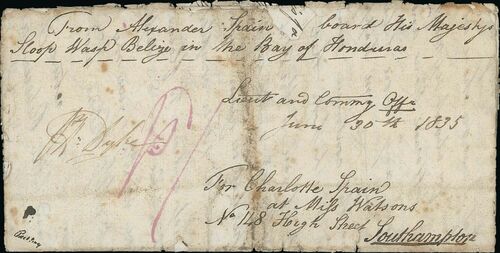 From Alexander Spain board His Majestys
Sloop Wasp Belize in the Bay of Honduras
Lieut and Commg Offr
June 30th 1835
Wm Dyke
For Charlotte Spain
at Miss Watsons
No 148 High Street
Southampton